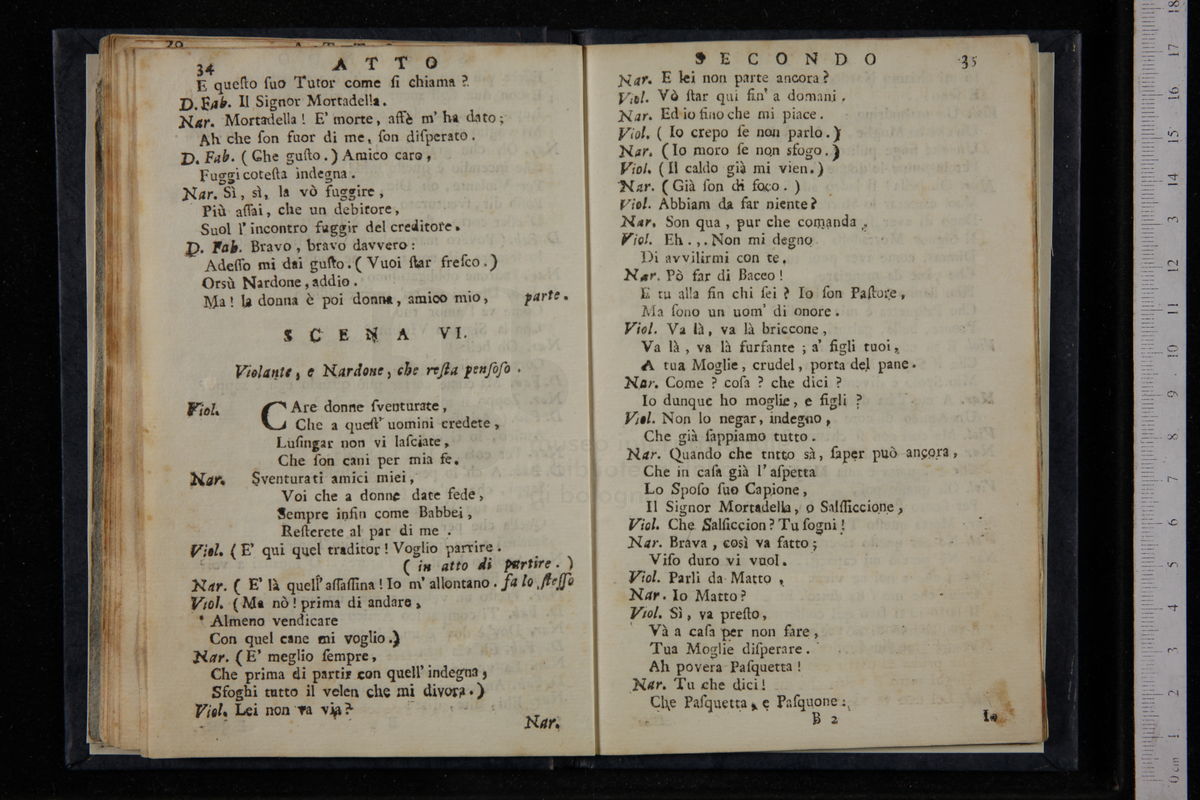 34 ATTO
E queſto ſuo Tutor come ſi chiama?
D. Fab. Il Signor Mortadella.
Nar. Mortadella! E' morte, affè m' ha dato;
Ah che ſon fuor di me, ſon diſperato.
D. Fab. (Che guſto.) Amico caro,
Fuggi coteſta indegna.
Nar. Sì, sì, la vò fuggire,
Più aſſai, che un debitore,
Suol l'incontro fuggir del creditore.
D. Fab. Bravo, bravo davvero:
Adeſſo mi dai guſto. (Vuoi ſtar freſco.)
Orsù Nardone, addio.
Ma! la donna è poi donna, amico mio, parte.
SCENA VI.
Violante, e Nardone, che reſta penſoſo.
Viol. CAre donne ſventurate,
Che a queſt' uomini credete,
Luſingar non vi laſciate,
Che ſon cani per mia fe.
Nar. Sventurati amici miei,
Voi che a donne date fede,
Sempre infin come Babbei,
Reſterete al par di me.
Viol. (E' qui quel traditor! Voglio partire.
(in atto di partire.)
Nar. (E' là quell' aſſaſſina! Io m' allontano. fa lo ſteſſo
Viol. (Ma nò! prima di andare,
Almeno vendicare
Con quel cane mi voglio.)
Nar. (E' meglio ſempre,
Che prima di partir con quell' indegna,
Sfoghi tutto il velen che mi divora.)
Viol. Lei non va via?
Nar.
SECONDO 35
Nar. E lei non parte ancora?
Viol. Vò ſtar qui fin' a domani.
Nar. Ed io fino che mi piace.
Viol. (Io crepo ſe non parlo.)
Nar. (Io moro ſe non sfogo.)
Viol. (Il caldo già mi vien.)
Nar. (Già ſon di foco.)
Viol. Abbiam da far niente?
Nar. Son qua, pur che comanda.
Viol. Eh... Non mi degno
Di avvilirmi con te.
Nar. Pò far di Bacco!
E tu alla fin chi ſei? Io ſon Paſtore,
Ma ſono un uom' di onore.
Viol. Va là, va là briccone,
Va là, va là furfante; a' figli tuoi,
A tua Moglie, crudel, porta del pane.
Nar. Come? coſa? che dici?
Io dunque ho moglie, e figli?
Viol. Non lo negar, indegno,
Che già ſappiamo tutto.
Nar. Quando che tntto sà, ſaper può ancora,
Che in caſa già l'aſpetta
Lo Spoſo ſuo Capione,
Il Signor Mortadella, o Salſſiccione,
Viol. Che Salſiccion? Tu ſogni!
Nar. Brava, così va fatto;
Viſo duro vi vuol.
Viol. Parli da Matto,
Nar. Io Matto?
Viol. Sì, va preſto,
Và a caſa per non fare,
Tua Moglie diſperare.
Ah povera Paſquetta!
Nar. Tu che dici!
Che Paſquetta, e Paſquone:
B 2 Io